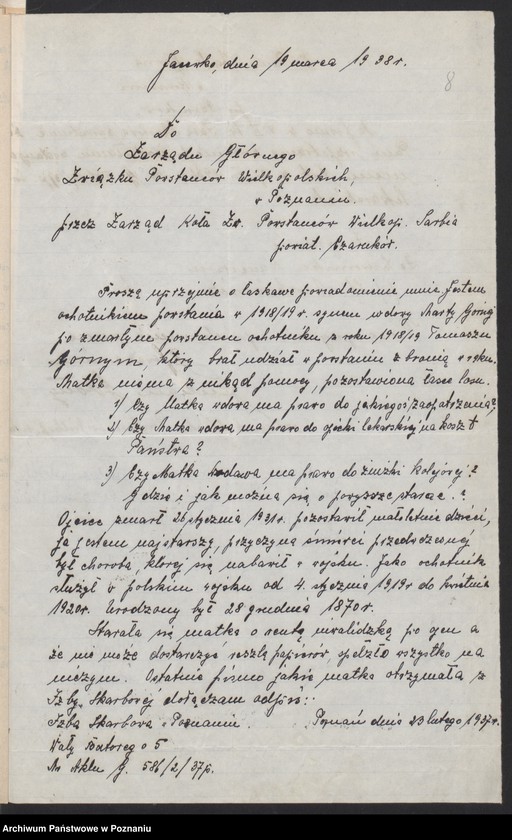 Jaworko, dnia 19 marca 1938 r.
8
Do
Zarządu Głównego
Związku Powstańców Wielkopolskich,
w Poznaniu
przez Zarząd Koła Zw. Powstańców Wielkop. Sarbia
powiat. Czarnków.
Proszę uprzejmie o łaskawe powiadomienie mnie, Jestem
ochotnikiem powstania w 1918/19 r. synem wdowy Marty Górnej
po zmarłym powstańcu ochotniku z roku 1918/19 Tomaszu
Górnym, który brał udział w powstaniu z bronią w ręku.
Matka niema z nikąd pomocy, pozostawiona łasce losu.
1) Czy Matka wdowa ma prawo do jakiegoś zaopatrzenia?
2) Czy Matka wdowa ma prawo do opieki lekarskiej na koszt
Państwa?
3) Czy Matka wdowa ma prawo do zniżki kolejowej?
Gdzie i jak można się o powyższe starać?
Ojciec zmarł 26 stycznia 1921 r. pozostawił małoletnie dzieci,
ja jestem najstarszy, przyczyną śmierci przedwczesnej
był choroba, której się nabawił w wojsku. Jako ochotnik
służył w polskim wojsku od 4. stycznia 1919 r do kwietnia
1920 r. Urodzony był 28 grudnia 1870 r.
Starała się matka o rentę inwalidzką po ojcu a
że nie może dostarczyć resztą papierów, spełzło wszystko na
niczym. Ostatnie pismo jakie matka otrzymała z
Izby Skarbowej dołączam odpis:.
Izba Skarbowa w Poznaniu. Poznań dnia 23 lutego 1937 r.
Wały Batorego 5
Nr Aktu J. 586/2/37p.
Archiwum Państwowe w Poznaniu